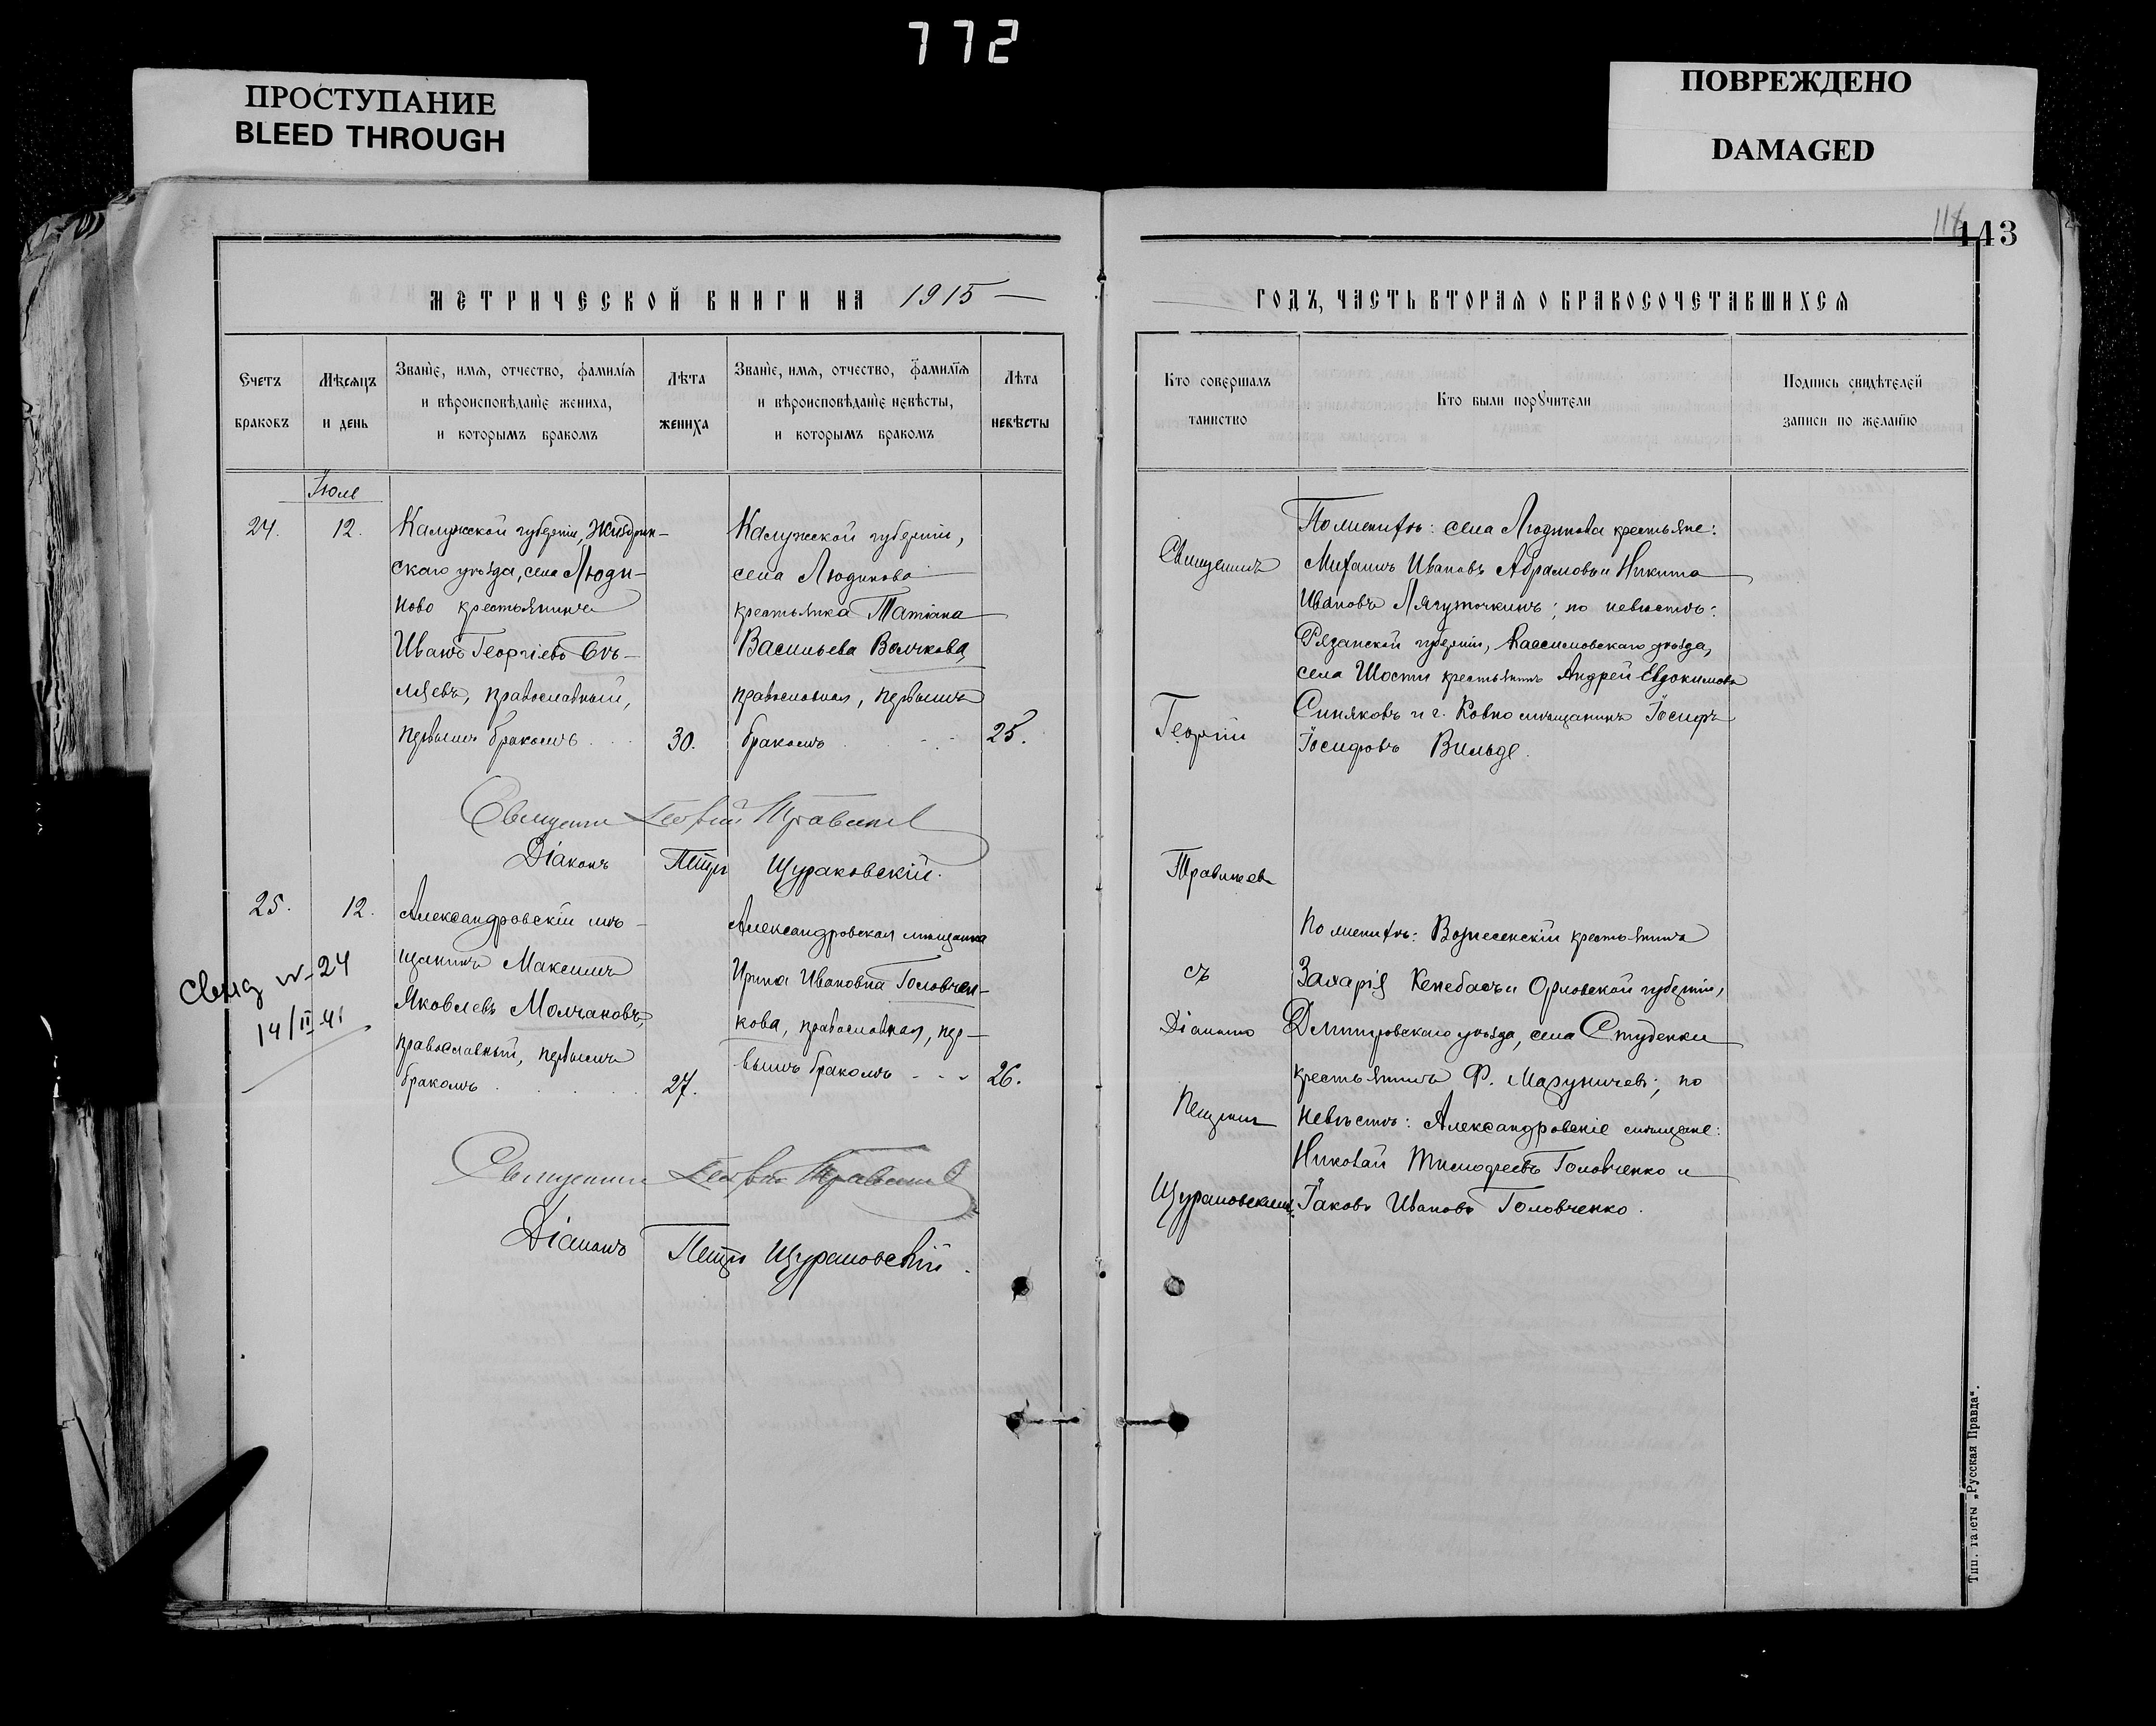 772
ПРОСТУПАНИЕ
BLEED THROUGH
ПОВРЕЖДЕНО
DAMAGED
143
МЕТРИЧЕСКОЙ КНИГИ НА 1915
Счетъ браковъ
Мѣсяцъ и день
Званїе, имя, отчество, фамилїя
и вѣроисповѣданїе жениха,
и которымъ бракомъ
Лѣта жениха
Званїе, имя, отчество, фамилїя
и вѣроисповѣданїе невѣсты,
и которымъ бракомъ
Лѣта невѣсты
Іюль
24.
12.
Калужской губерніи, Жиздрин-
скаго уѣзда, села Люди-
ново крестьянинъ
Иванъ Георгіевъ Бѣ-
ляевъ, православный,
первымъ бракомъ
30.
Калужской губерніи,
села Людиново
крестьянка Татіана
Васильева Волчкова,
православная, первымъ
бракомъ
25.
Священникъ Георгій
Діаконъ Петръ Щураковскій.
25.
12.
Александровскій мѣ-
щанинъ Максимъ
Яковлевъ Молчановъ,
православный, первымъ
бракомъ
27.
Александровская мѣщанка
Ирина Ивановна Головчен-
кова, православная, пер-
вымъ бракомъ
26.
№ 24
14/II 41
Священникъ Георгій
Діаконъ Петръ Щураковскій.
ГОДЪ, ЧАСТЬ ВТОРАЯ О БРАКОСОЧЕТАВШИХСЯ
Кто совершалъ таинство
Кто были порꙋчители
Подпись свидѣтелей
записи по желанїю
Священникъ
Георгій
съ
Діакономъ
Петромъ
Щураковскимъ.
По женихѣ: села Людинова крестьяне:
Михаилъ Ивановъ Абрамовъ и Никита
Ивановъ Лягуточкинъ; по невѣстѣ:
Рязанской губерніи, Кассимовскаго уѣзда,
села Шости крестьянинъ Андрей Евдокимовъ
Синяковъ и г. Ковно мѣщанинъ Іосифъ
Іосифовъ Вильде.
По женихѣ: Вознесенскій крестьянинъ
Захарія Кенебасъ и Орловской губерніи,
Дмитровскаго уѣзда, села Студенки
крестьянинъ Ф. Мазуничевъ; по
невѣстѣ: Александровскіе мѣщане:
Николай Тимофеевъ Головченко и
Іаковъ Ивановъ Головченко.
Тип. газеты „Русская Правда“.